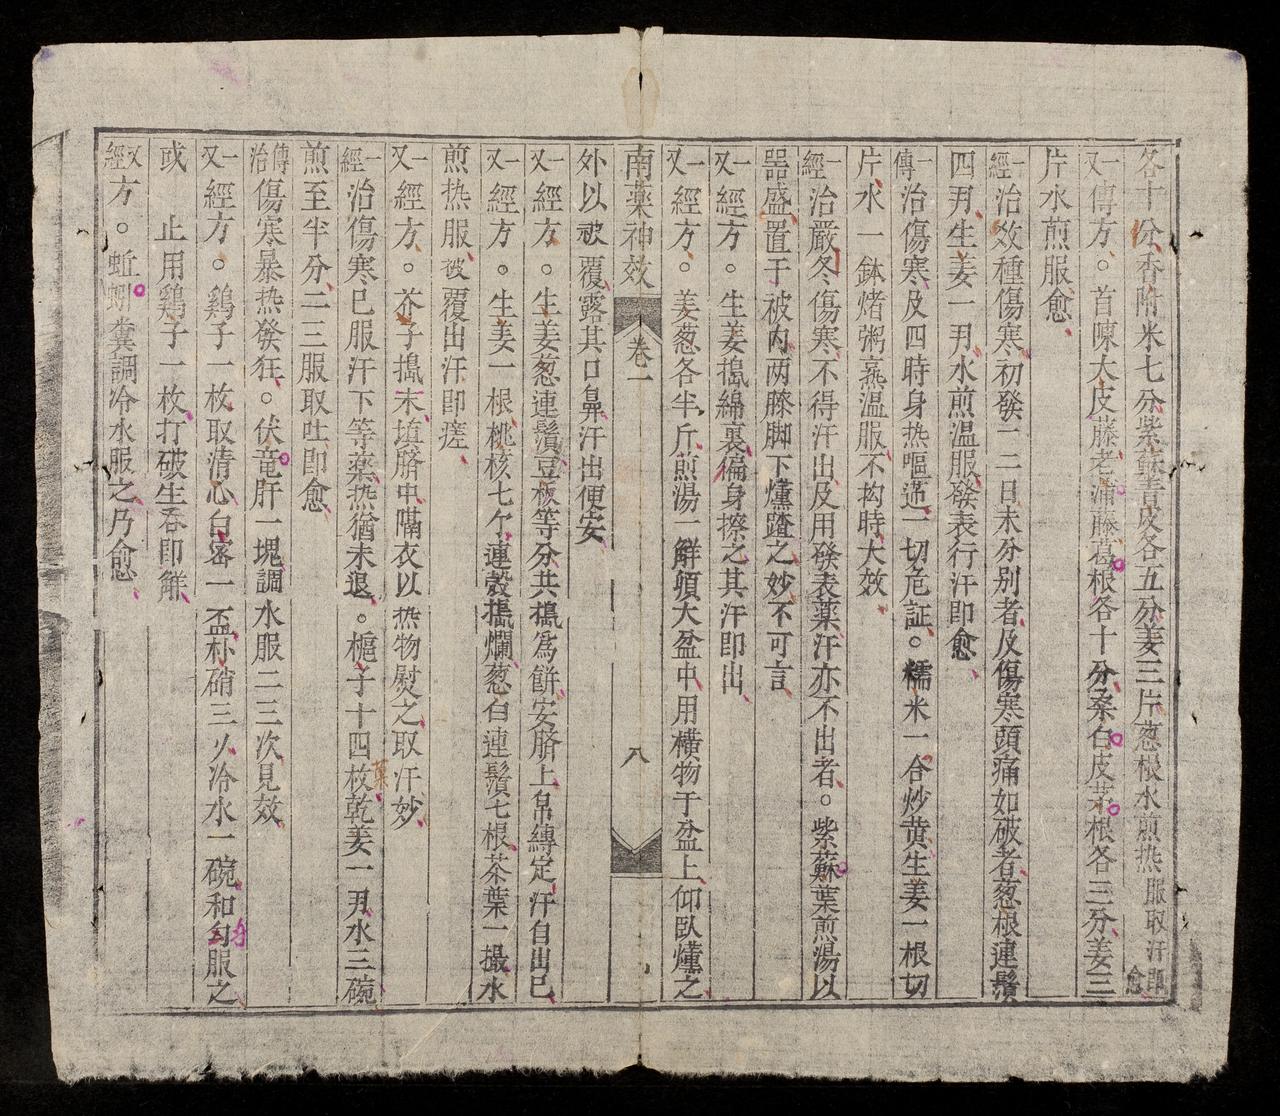 各十分香附米七分紫蘇青皮各五分姜三片葱根水煎热服取汗即愈
一又傳方。首陳大皮藤老浦藤葛根各十分桑白皮茅根各三分姜三
片水煎服愈
一經治效種傷寒初發一二日未分別者及傷寒頭痛如破者葱根連鬚
四刄生姜一刄水煎温服發表行汗即愈
一傳治傷寒及四時身热嘔逆一切危証。糯米一合炒黄生姜一根切
片水一鉢烤粥熟温服不拘時大效
一經治嚴冬傷寒不得汗出及用發表薬汗亦不出者。紫蘇葉煎湯以
噐盛置于被内两膝脚下爊蹅之妙不可言
一又經方。生姜搗綿裏徧身擦之其汗即出
一又經方。姜葱各半斤煎湯一觧頓大盆中用横物于盆上仰臥爊之
南薬神效 卷一 八
外以被覆露其口鼻汗出便安
一又經方。生姜葱連鬚豆板等分共搗為餅安臍上帛縛定汗自出已
一又經方。生姜一根桃核七亇連殼搗爛葱白連鬚七根茶葉一撮水
煎热服被覆出汗即瘥
一又經方。芥子搗末填臍中隔衣以热物熨之取汗妙
一經治傷寒已服汗下等薬热猶未退。梔子十四枚乾姜一刄水三碗
煎至半分二三服取吐即愈
傳治傷寒暴热發狂。伏竜肝一塊調水服二三次見效
一又經方。鷄子一枚取清心白宻一盃朴硝三火冷水一碗和匀服之
或 止用鷄子一枚打破生吞即觧
又經方。蚯蚓糞調冷水服之乃愈